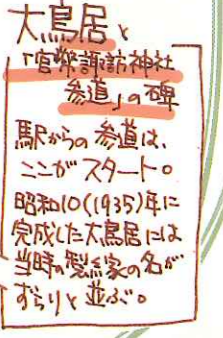 大鳥居と
「官幣諏訪神社
参道」の碑
駅からの参道は、
ここがスタート。
昭和10(1935)年に
完成した大鳥居には
当時の製絲家の名が
ずらりと並ぶ。